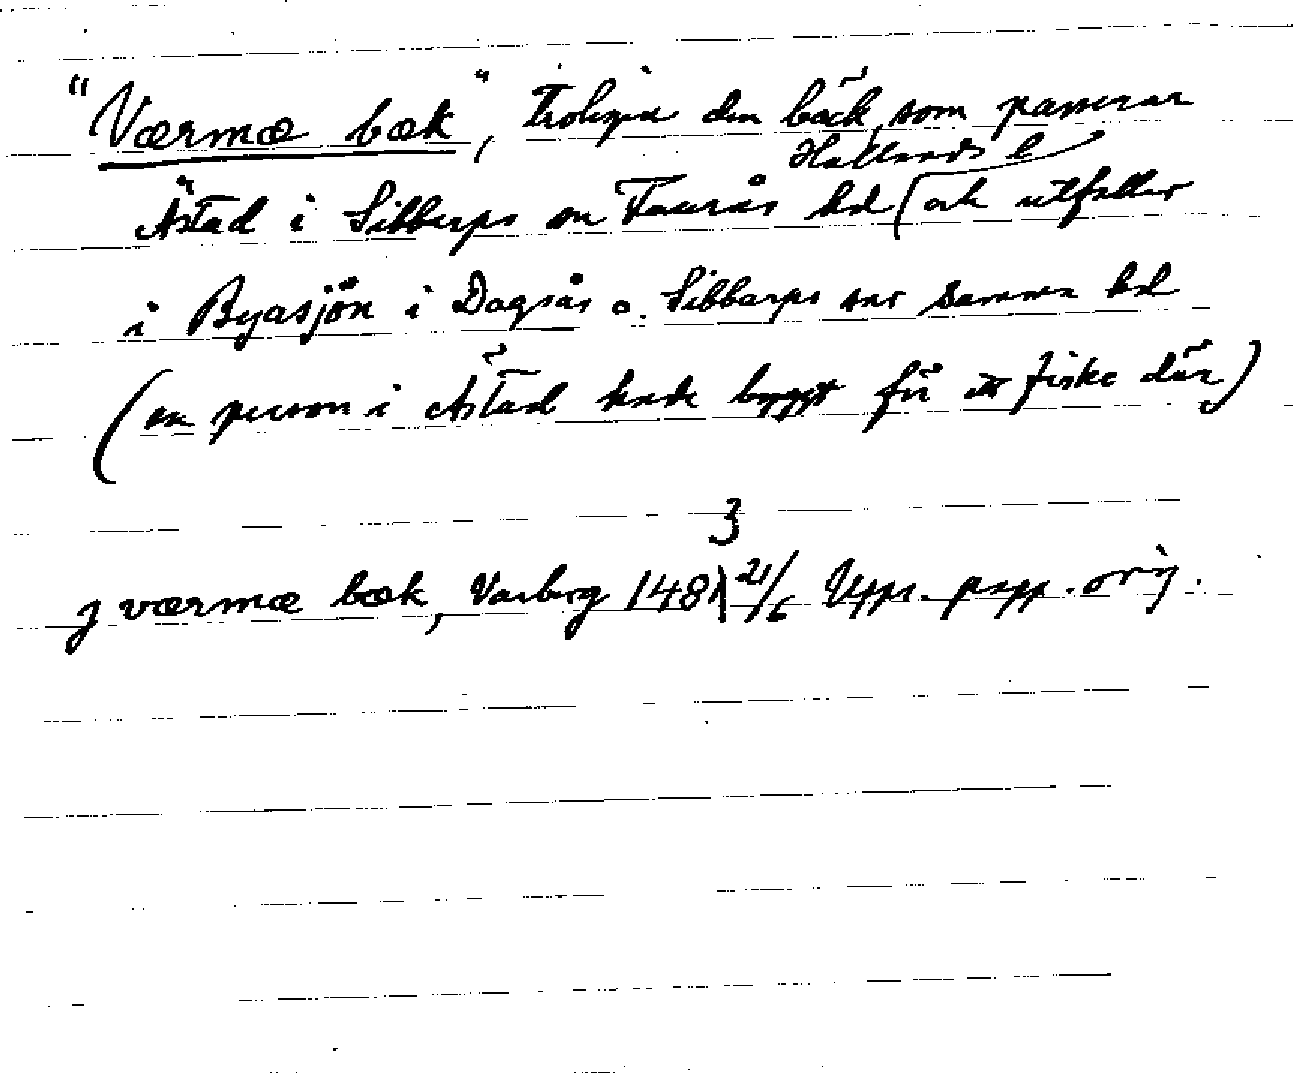 "Værmæ bæk", troligen den bäck, som passerar
Hallands l
Ästad i Sibbarps sn Faurås hd och utfaller
i Byasjön i Dagsås o. Sibbarps snr samma hd
(en person i Ästad hade byggt för ett fiske där)
3
j værmæ bæk, Varberg 148 21/6 Upps. papp. orig.